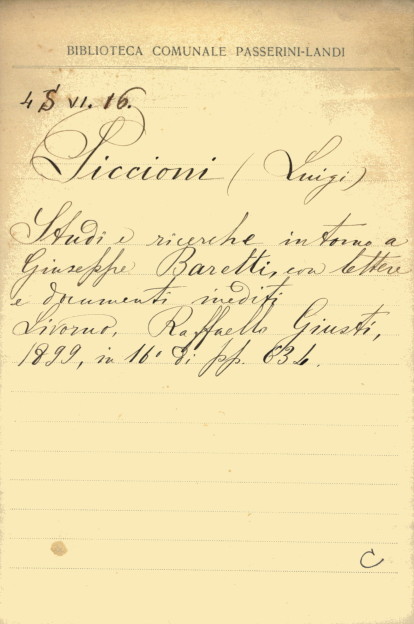 BIBLIOTECA COMUNALE PASSERINI-LANDI
4 S VI. 16.
Piccioni (Luigi)
Studi e ricerche intorno a
Giuseppe Baretti, con lettere
e documenti inediti
Livorno, Raffaello Giusti,
1899, in 16° di pp. 634.
C